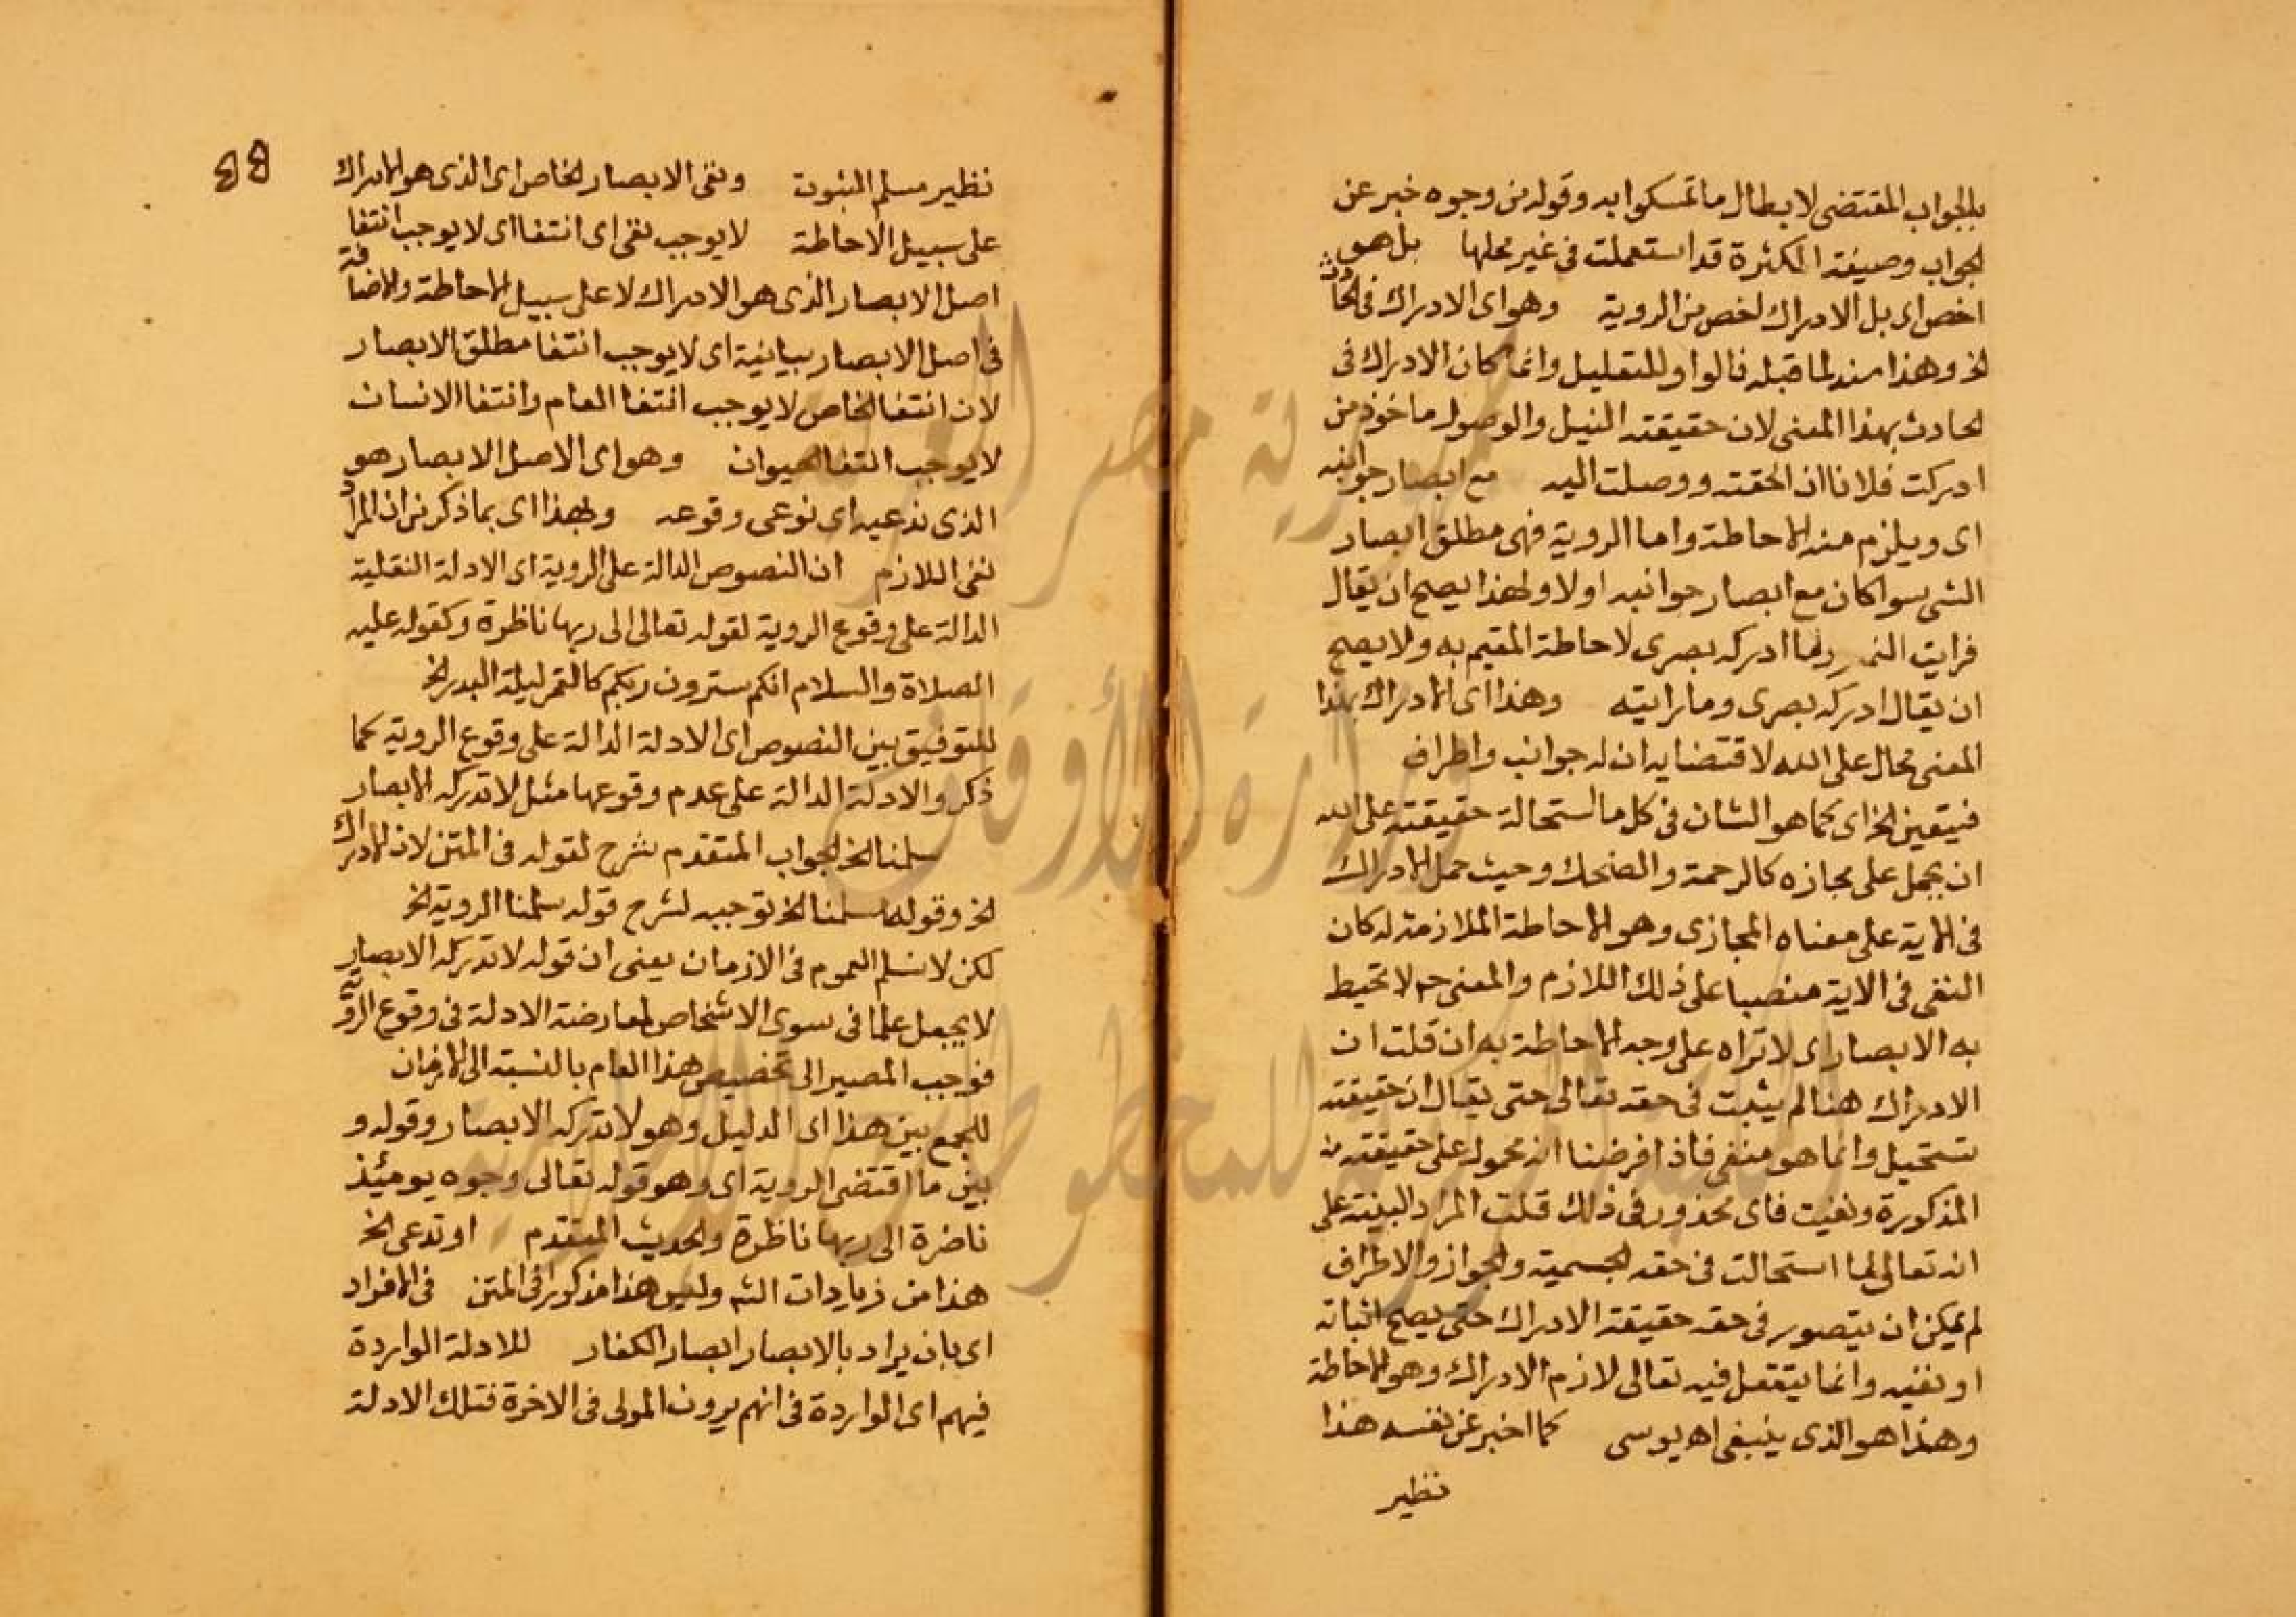 بالجواب المقتضى لابطال ما تمسكوا به وقوله من وجوه خبر عن
الجواب وصيغة الكثرة قد استعملت فى غير محلها بل هو
اخص اى بل الادراك اخص من الروية وهو اى الادراك فى الحادث
الخ وهذا سند لما قبله فالواو للتعليل وانما كان الادراك فى
الحادث بهذا المعنى لان حقيقته النيل والوصول ماخوذ من
ادركت فلانا اذا لحقته ووصلت اليه مع ابصار جوانبه
اى ويلزم منه الاحاطة واما الروية فهى مطلق ابصار
الشى سوا كان مع ابصار جوانبه اولا ولهذا يصح ان يقال
فرايت القمر وما ادركه بصرى لاحاطة الغيم به ولا يصح
ان يقال ادركه بصرى وما رايته وهذا اى الادراك بهذا
المعنى محال على الله لاقتضايه ان له جوانب واطراف
فيتعين الخ اى كما هو الشان فى كل ما استحالة حقيقته على الله
ان يحمل على مجازه كالرحمة والضحك وحيث حمل الادراك
فى الاية على معناه المجازى وهو الاحاطة الملازمة له كان
النفى فى الاية منصبا على ذلك اللازم والمعنى ح لا تحيط
به الابصار اى لا تراه على وجه الاحاطة به ان قلت ان
الادراك هنا لم يثبت فى حقه تعالى حتى يقال ان حقيقته
تستحيل وانما هو منفى فاذا فرضنا انه محمول على حقيقته
المذكورة ونفيت فاى محذور فى ذلك قلت المراد البينة على
انه تعالى لما استحالت فى حقه الجسمية والجواز والاطراف
لم يمكن ان يتصور فى حقه حقيقة الادراك حتى يصح اثباته
او نفيه وانما يتعقل فيه تعالى لازم الادراك وهو الاحاطة
وهذا هو الذى ينبغى اه يوسى كما اخبر عن نفسه هذا
نظير
88
نظير مسلم الثبوت ونفى الابصار الخاص اى الذى هو الادراك
على سبيل الاحاطة لا يوجب نفى اى انتفا اى لا يوجب انتفا
اصل الابصار الذى هو الادراك لا على سبيل الاحاطة والاضافة
فى اصل الابصار بيانية اى لا يوجب انتفا مطلق الابصار
لان انتفا الخاص لا يوجب انتفا العام وانتفا الانسان
لا يوجب انتفا الحيوان وهو اى الاصل الابصار هو
الذى ندعيه اى نوعى وقوعه وبهذا اى بما ذكر من ان المراد
نفى اللازم ان النصوص الدالة على الروية اى الادلة النقلية
الدالة على وقوع الروية لقوله تعالى الى ربها ناظرة وكقوله عليه
الصلاة والسلام انكم سترون ربكم كالقمر ليلة البدر الخ
للتوفيق بين النصوص اى الادلة الدالة على وقوع الروية كما
ذكر والادلة الدالة على عدم وقوعها مثل لا تدركه الابصار
سلمنا الخ الجواب المتقدم شرح لقوله فى المتن لان الادراك
الخ وقوله سلمنا الخ توجيه لشرح قوله سلمنا الروية الخ
لكن لا نسلم العموم فى الازمان يعنى ان قوله لا تدركه الابصار
لا يجعل علما فى سوى الاشخاص لمعارضة الادلة فى وقوع الروية
فوجب المصير الى تخصيص هذا العام بالنسبة الى الازمان
للجمع بين هذا اى الدليل وهو لا تدركه الابصار وقوله و
بين ما اقتضى الروية اى وهو قوله تعالى وجوه يومئذ
ناضرة الى ربها ناظرة والحديث المتقدم او تدعى الخ
هذا من زيادات الش وليس هذا مذكورا فى المتن فى الافراد
اى بان يراد بالابصار ابصار الكفار للادلة الواردة
فيهم اى الواردة فى انهم يرون المولى فى الاخرة فتلك الادلة
جمهورية مصر العربية
وزارة الأوقاف
المكتبة المركزية للمخطوطات الإسلامية